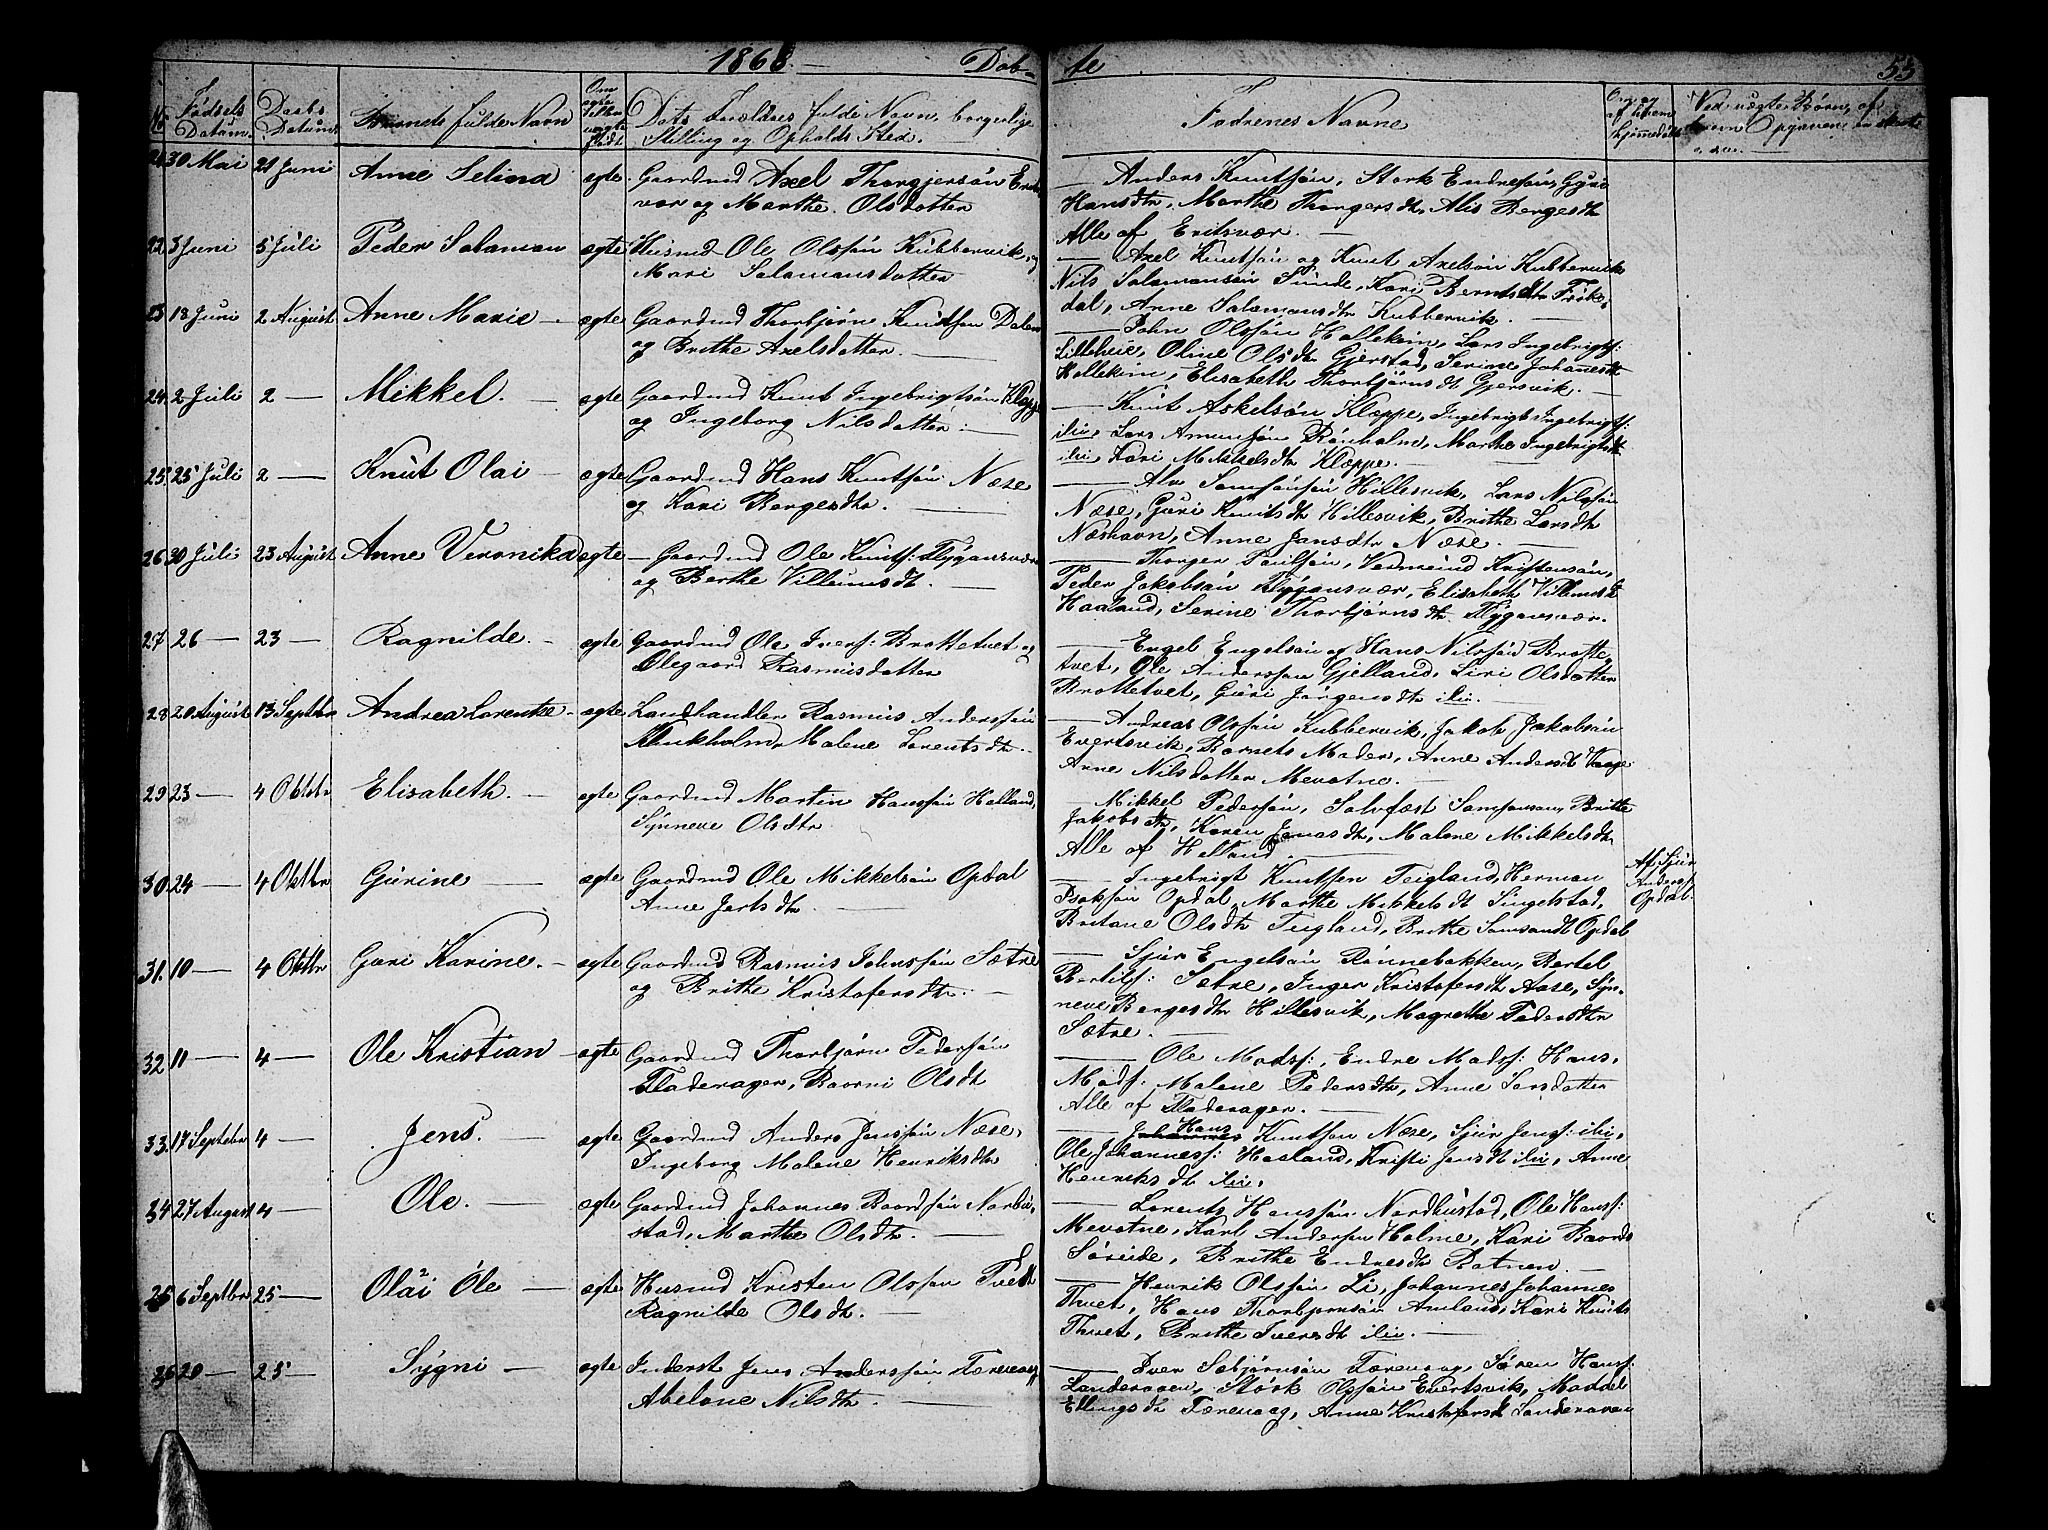 1868. — Døb-
te
55
№
Fødsels
Datum.
Daabs
Datum.
Barnets fulde Navn
Om
ægte
eller
uægte
født.
Dets Forældres fulde Navn, borgerlige
Stilling og Opholds Sted.
Fadrenes Navne
Om og
af hvem
hjemmedøbt
Ved uægte Børn, af
30 Mai 21 Juni Anne Selina ægte Gaardmd Axel Thorgjersøn Erits
vær og Marthe Olsdatter
— Anders Knutsøn, Stork Endresøn, Guri
Hansdtr, Marthe Thorgersdtr, Alis Bergesdtr
Alle af Eritsvær. —
22 3 Juni 5 Juli Peder Salaman ægte Husmd Ole Olsøn Kubbervik, og
Mari Salamansdatter
— Axel Knutsøn og Knut Axelsøn Kubbervik
Nils Salamansøn Sunde, Kari Berntsdtr Fiske-
dal, Anne Salamansdtr Kubbervik. —
23 18 Juni 2 August Anne Marie — ægte Gaardmd Thorbjørn Knutsøn Dalen
og Brithe Axelsdatter. —
— John Olsøn Hallekim, Lars Ingebrigts:
Lillelvie, Oline Olsdtr Gjerstad, Serine Johannesdtr
Hillekim, Elisabeth Thorbjørnsdt Gjersvik. —
24 2 Juli 2 — Mikkel. — ægte Gaardmd Knut Ingebrigtsøn Kleppe
og Ingeborg Nilsdatter. —
— Knut Askelsøn Klæppe, Ingebrigt Ingebrigts:
ibi, Lars Amundsøn Rønholm, Marthe Ingebrigtsdt
ibi, Kari Mikkelsdtr Klæppe. —
25 25 Juli 2 — Knut Olai — ægte Gaardmd Hans Knutsøn Næse
og Kari Bergesdtr. —
— Alv Samsonsøn Hillesvik, Lars Nilsøn
Næse, Guri Knutsdtr Hillesvik, Brithe Larsdtr
Næshavn, Anne Jansdtr Næse. —
26 30 Juli 23 August Anne Veronika ægte — Gaardmd Ole Knuts: Flygansvær
og Berthe Villumsdt. —
— Thorger Poulsøn, Vermund Kristensøn,
Peder Jakobsøn Flygansvær, Elisabeth Villumsdt
Haaland, Serine Thorbjørnsdt. Flygansvær.
27 26 — 23 — Ragnilde. — ægte Gaardmd Ole Ivers: Brottetvet og
Olegaard Rasmusdatter
— Engel Engelsøn og Hans Nilssøn Brotte-
tvet, Ole Anderssøn Gjelland, Siri Olsdatter
Brottetvet, Guri Jørgensdtr ibi. —
28 20 August 13 Septbr Andrea Lorentze — ægte Landhandler Rasmus Anderssøn
Klinkholm, Malene Lorentsdtr. —
— Andreas Olsøn Kubbervik, Jakob Jakobsøn
Evertsvik, Barnets Moder, Anne Andersdt Vaage
Anne Nilsdatter Mevatne. —
29 23 — 4 Oktbr Elisabeth. — ægte Gaardmd Martin Hanssøn Helland,
Synneve Olsdtr.
— Mikkel Pedersøn, Salvfæst Samsonsøn, Brithe
Jakobsdtr, Karen Jonasdtr, Malene Mikkelsdtr
Alle af Helland. —
30 24 — 4 Oktbr Gurine — ægte Gaardmd Ole Mikkelsøn Opdal
Anne Jertsdtr —
— Ingebrigt Knutsøn Teigland, Herman
Isaksøn Opdal, Marthe Mikkelsdt Singelstad,
Britane Olsdtr Teigland, Brithe Samsonsdt Opdal
Af Sjur
Anders:
Opdal.
31. 10 — 4 Oktbr Guri Karine. — ægte Gaardmd Rasmus Johnssøn Sætre
og Brithe Kristofersdtr. —
— Sjur Engelsøn Rønnebakken, Bertel
Bertels: Sætre, Inger Kristofersdtr Aase, Syn-
neve Bergesdtr Hillesvik, Magrethe Pedersdtr
Sætre. —
32 11 — 4 — Ole Kristian — ægte Gaardmd Thorbjørn Pedersøn
Fladerager, Baarni Olsdt
— Ole Mads: Endre Mads: Hans
Mads: Malene Pedersdtr, Anne Larsdatter
Alle af Fladerager. —
33. 17 Septebr 4 — Jens. — ægte Gaardmd Anders Jenssøn Næse,
Ingeborg Malene Henriksdtr
— Johannes Hans Knutsøn Næse, Sjur Jens: ibi,
Ole Johanness: Haaland, Kristi Jensdt ibi, Anne
Henriksdt ibi.
34 27 August 4 — Ole. — ægte Gaardmd Johannes Baardsøn Nordhu-
stad, Marthe Olsdtr. —
— Lorents Hanssøn Nordhustad, Ole Hans:
Mevatne, Karl Andersen Holme, Kari Baards
Søreide, Brithe Endresdtr Botnen. —
35 6 Septbr 25 — Olai Ole — ægte Husmd Kristen Olssøn Tvedt
Ragnilde Olsdt. —
— Henrik Olsøn Li, Johannes Johannes
Thvet, Hans Thorbjørnsøn Amland, Kari Knuts
Thvet, Brithe Iversdt ibi. —
36 20 — 25 — Sygni — ægte Inderst Jens Anderssøn Færevaag
Abelone Nilsdtr. —
— Iver Sæbjørnsøn Færevaag, Søren Hans:
Landeraaen, Størk Olssøn Evertsvik, Maddel
Ellingsdt Færevaag, Anne Kristofersdt Landeraaen